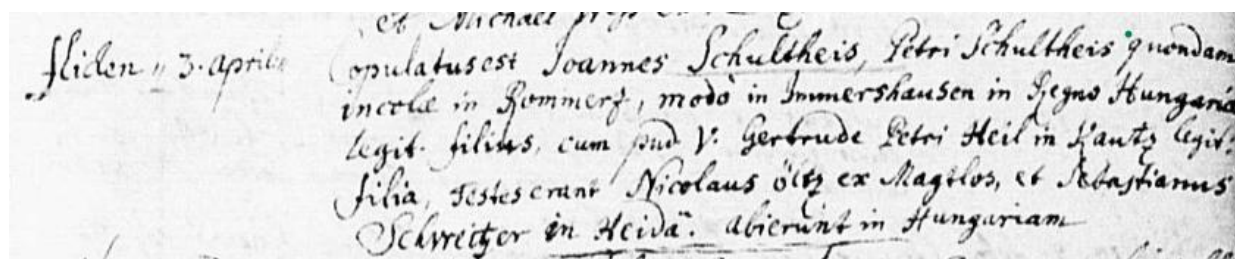 et Michael
Fliden 3. Aprilis Copulatus est Joannes Schultheis, Petri Schultheis quondam
incolæ in Rommerz, modò in Immershausen in Regno Hungariæ
legit. filius, cum pud. V. Gertrude Petri Heil in Kautz legit.
filia, Testes erant Nicolaus öltz ex Magtlos, et Sebastianus
Schreitzer in Heidä. abierunt in Hungariam